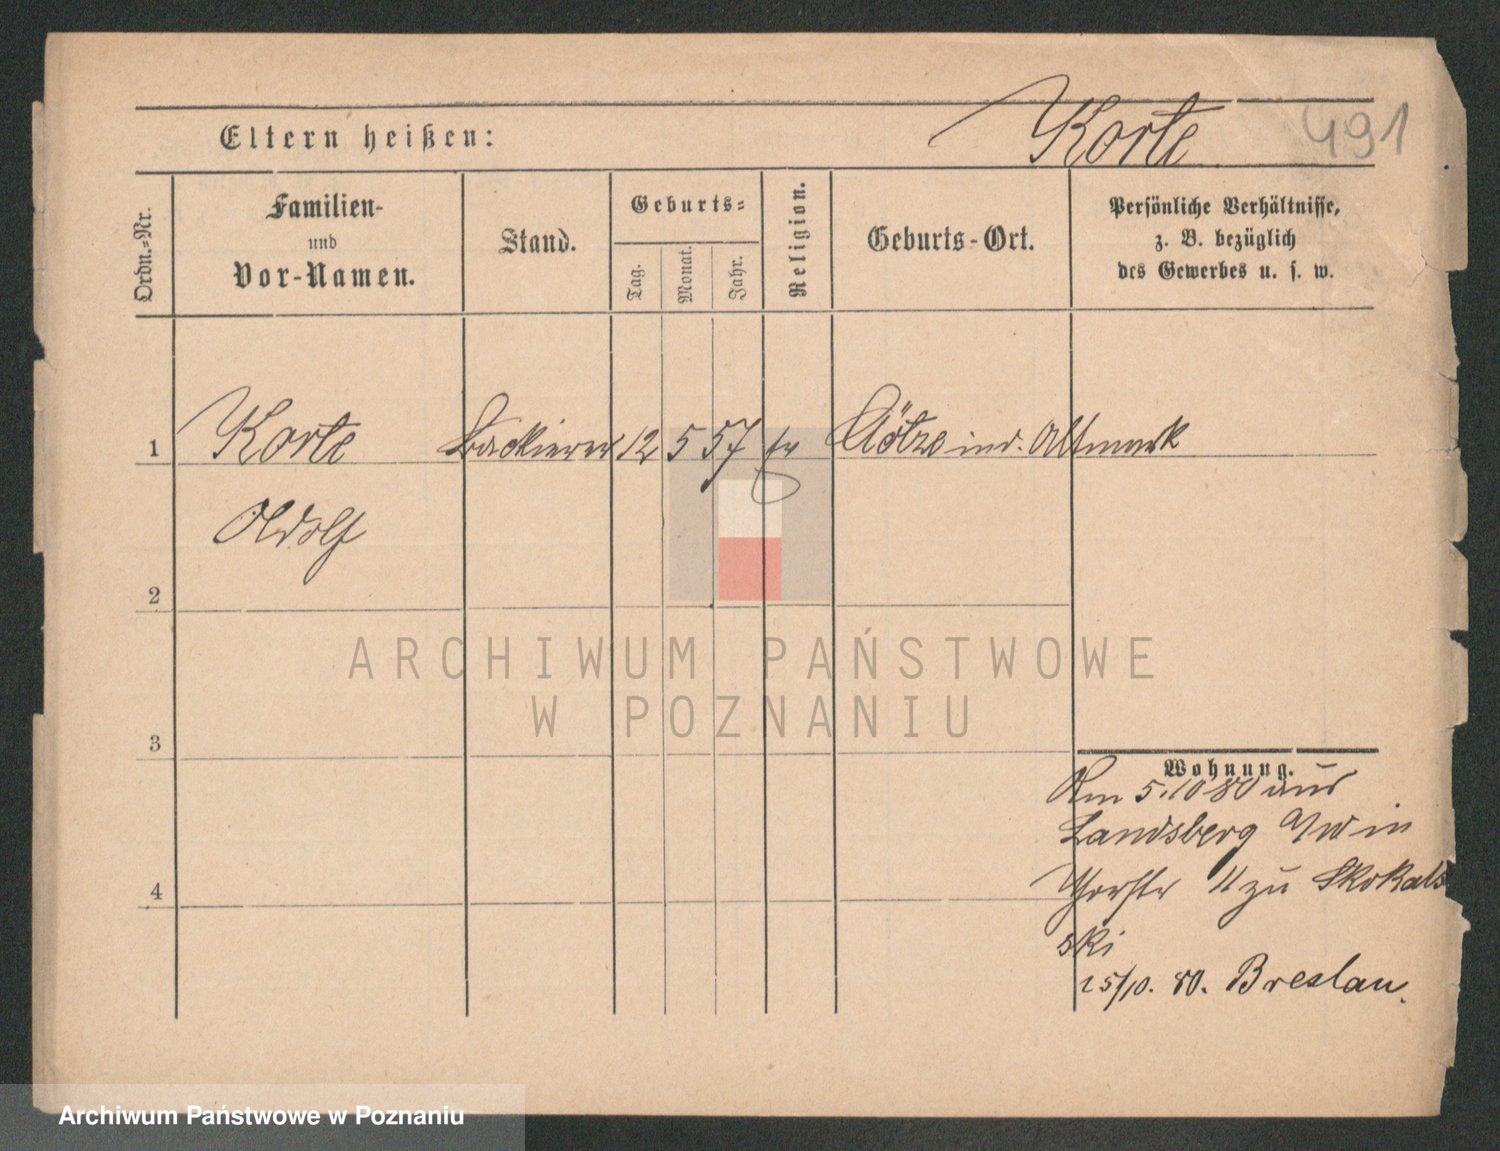 Korte 491
Eltern heißen:
Ordn.-Nr.
Familien-
und
Vor-Namen.
Stand.
Geburts-
Tag.
Monat.
Jahr.
Religion.
Geburts-Ort.
Persönliche Verhältnisse,
z. B. bezüglich
des Gewerbes u. s. w.
1 Korte Lackierer 12 5 57 Altmark
Adolf
2
3
4
ARCHIWUM PAŃSTWOWE
W POZNANIU
Wohnung.
Am 5.10 80 aus
Landsberg a/W in
11 zu Skokals
ski
25/10. 80. Breslau.
Archiwum Państwowe w Poznaniu